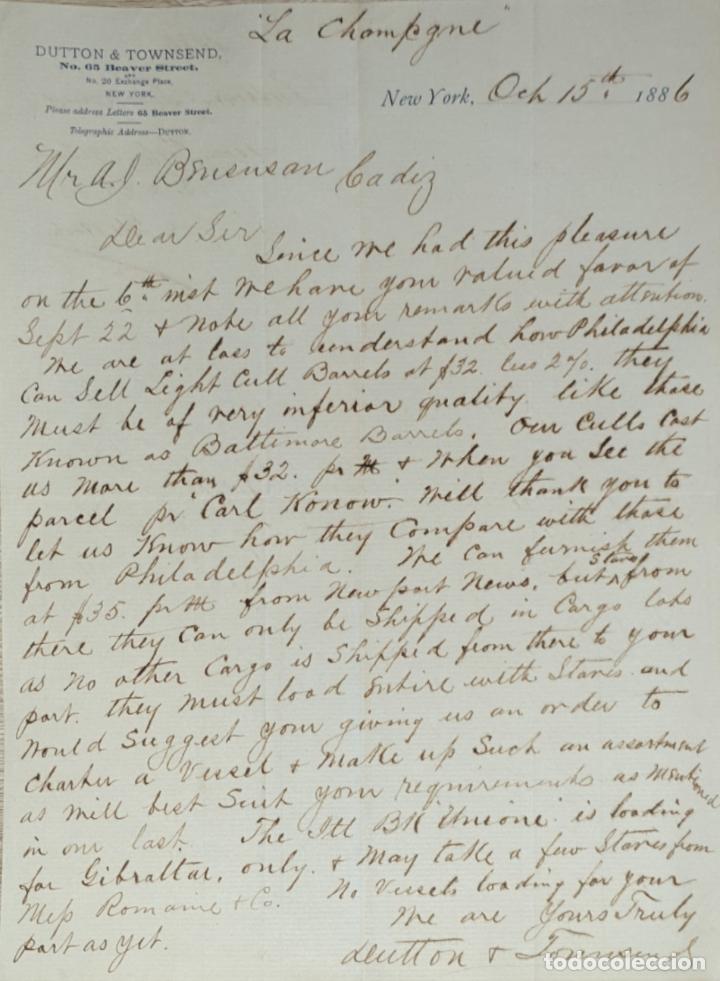 "La Champgne"
DUTTON & TOWNSEND,
No. 65 Beaver Street,
AND
No. 20 Exchange Place,
NEW YORK.
Please address Letters 65 Beaver Street.
Telegraphic Address—DUTTON.
New York, Oct 15th. 1886
Mr A. J. Bensusan Cadiz
Dear Sir
Since we had this pleasure
on the 6th. inst we have your valued favor of
Sept 22 & note all your remarks with attention.
We are at loss to understand how Philadelphia
Can Sell Light Cull Barrels at $32 less 2%. they
Must be of very inferior quality like those
Known as Baltimore Barrels. Our Culls Cost
us More than $32. pr M & When you See the
parcel pr "Carl Konow" Will thank you to
let us Know how they Compare with those
from Philadelphia. We Can furnish them
at $35. pr M from Newport News, but Staves from
there they Can only be Shipped in Cargo lots
as no other Cargo is Shipped from there to your
port. they Must load Entire with Staves and
Would Suggest your giving us an order to
Charter a Vessel & Make up Such an assortment
as will best Suit your requirements as Mentioned
in our last. The Itl Bk "Unione" is loading
for Gibraltar, only. & May take a few Staves from
Mess Romaine & Co. No Vessels loading for your
port as yet. We are Yours Truly
Dutton & Townsend
todocoleccion